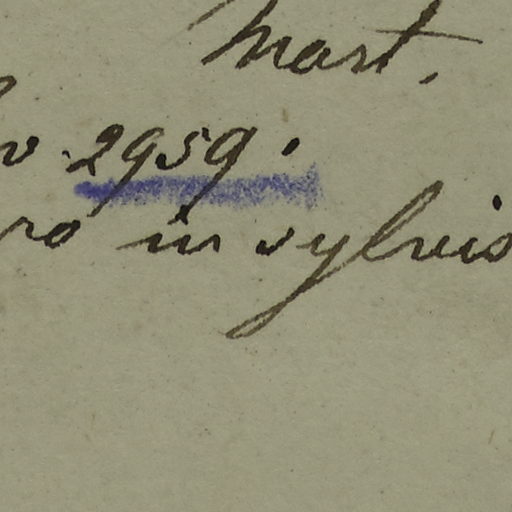 Mart.
v. 2959.
ro in sylvis